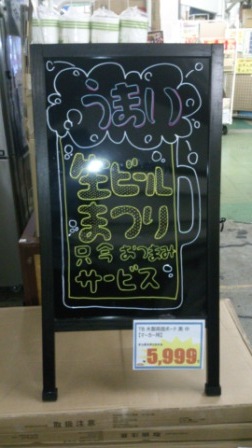 うまい
生ビール
まつり
只今おつまみ
サービス
5,999
取扱注意